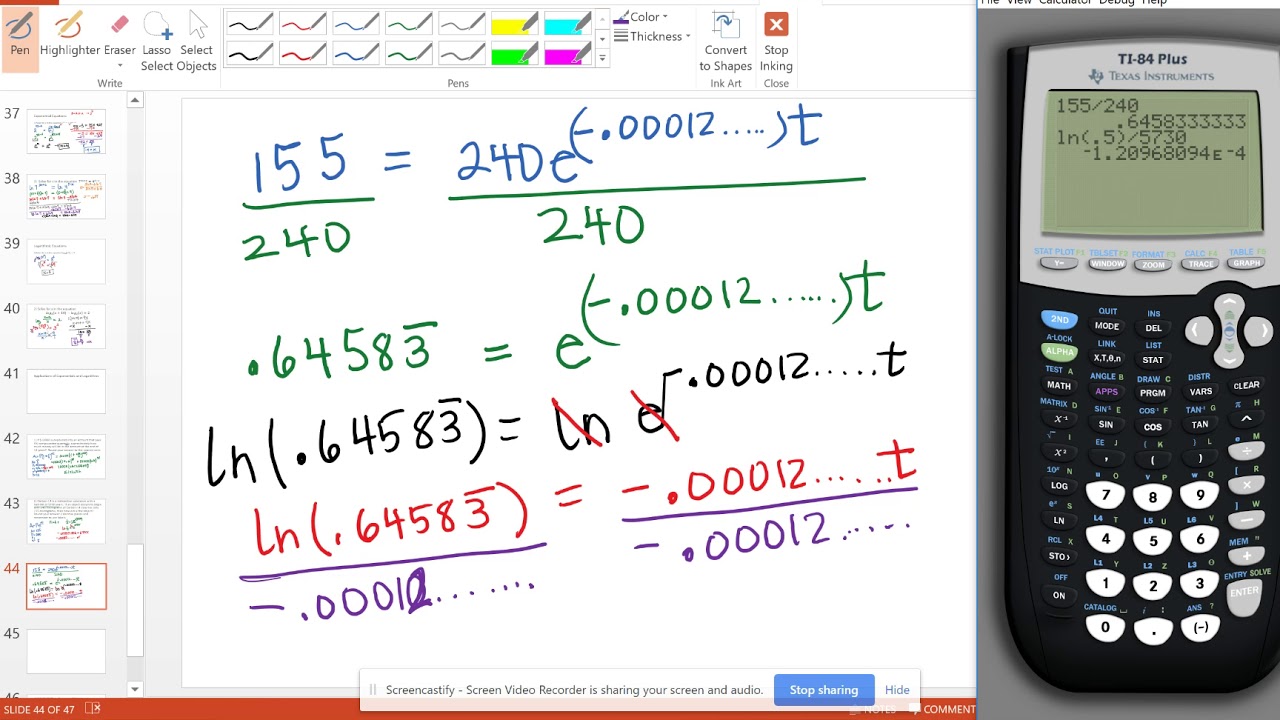 View Calculator Debug Help
Pen
Highlighter
Eraser
Lasso Select
Select Objects
Write
Pens
Color
Thickness
Convert to Shapes
Ink Art
Stop Inking
Close
37
38
39
40
41
42
43
44
45
155 = 240e^(-.00012.....)t
240 240
.64583̅ = e^(-.00012......)t
ln(.64583̅) = ln e^-.00012.....t
ln(.64583̅) = -.00012......t
-.00012....... -.00012.....
TI-84 Plus
TEXAS INSTRUMENTS
155/240
.6458333333
ln(.5)/5730
-1.20968094E-4
STAT PLOT F1 TBLSET F2 FORMAT F3 CALC F4 TABLE F5
Y= WINDOW ZOOM TRACE GRAPH
QUIT INS
2ND MODE DEL
A-LOCK LINK LIST
ALPHA X,T,θ,n STAT
TEST A ANGLE B DRAW C DISTR
MATH APPS PRGM VARS CLEAR
MATRIX D SIN⁻¹ E COS⁻¹ F TAN⁻¹ G π H
X⁻¹ SIN COS TAN ^
√ I EE J { K } L e M
X² , ( ) ÷
10ˣ N u O v P w Q [ R
LOG 7 8 9 ×
eˣ S L4 T L5 U L6 V ] W
LN 4 5 6 −
RCL X L1 Y L2 Z L3 Θ MEM "
STO› 1 2 3 +
OFF CATALOG ␣ i : ANS ? ENTRY SOLVE
ON 0 . (-) ENTER
Screencastify - Screen Video Recorder is sharing your screen and audio.
Stop sharing
Hide
SLIDE 44 OF 47
NOTES
COMMENT